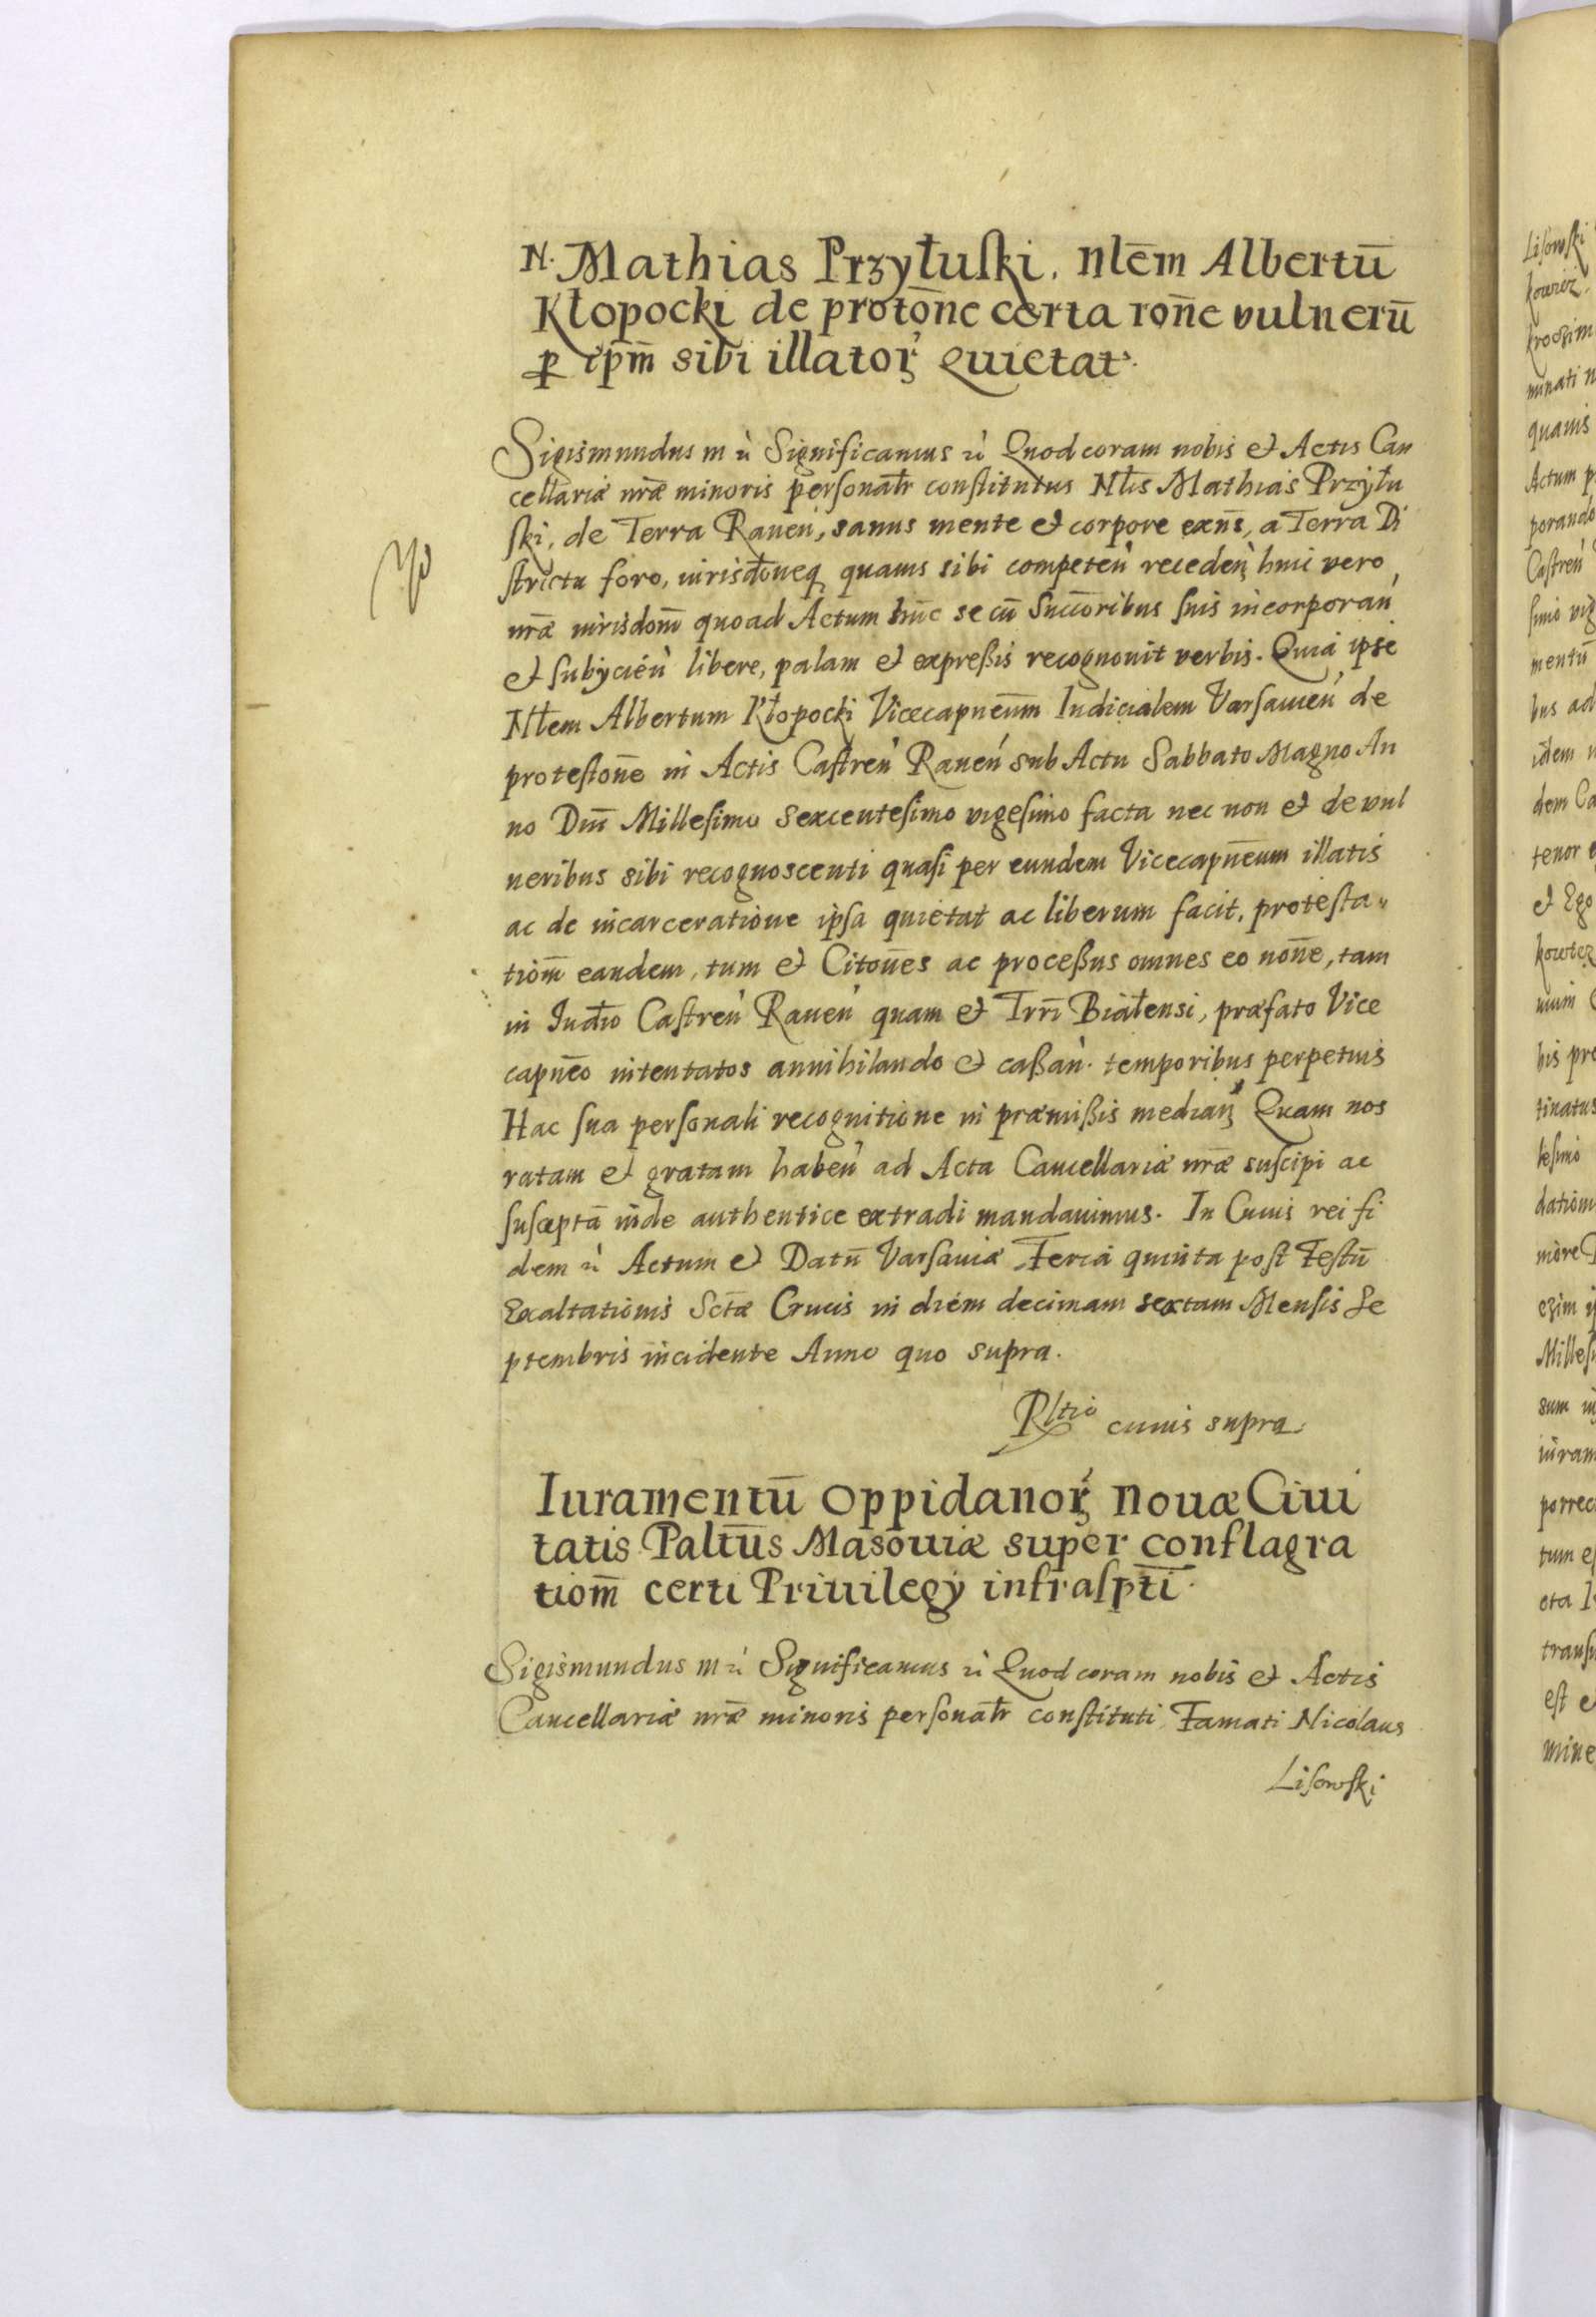 N. Mathias Przyłuski. Nlēm Albertū
Kłopocki de protōne certa rōne vulnerū
ꝑ ip̄m sibi illatorꝝ Quietat.
Sigismundus m ѝ Significamus ѝ Quod coram nobis et Actis Can
cellariæ nrǣ minoris personalr constitutus Nłis Mathias Przyłu
ski, de Terra Rauen̄, sanus mente et corpore exn̄s, a Terra Di
strictu foro, iurisdōneq, quauis sibi competen̄ receden̄ huic vero
nrǣ iurisdōni quoad Actum hūc se cū Succōribus suis incorporan̄
et subijcien̄ libere, palam et expreßis recognouit verbis. Quia ipse
Nłem Albertum Kłopocki Vicecapnēum Iudicialem Varsauien̄ de
protestōne in Actis Castren̄ Rauen̄ sub Actu Sabbato Magno An
no Dnī Millesimo sexcentesimo vigesimo facta nec non et de vul
neribus sibi recognoscenti quasi per eundem Vicecapnēum illatis
ac de incarceratione ipsa quietat ac liberum facit, protesta„
tiōm eandem, tum et Citōnes ac proceßus omnes eo nōne, tam
in Iudio Castren̄ Rauen̄ quam et Trrī Białensi, præfato Vice
capnēo intentatos annihilando et caßan̄. temporibus perpetuis
Hac sua personali recognitione in præmißis medianꝫ Quam nos
ratam et gratam haben̄ ad Acta Cancellariæ nrǣ suscipi ac
susceptā inde authentice extradi mandauimus. In Cuius rei fi
dem ѝ Actum et Datū Varsauiæ Feria quinta post Festū
Exaltationis Sctǣ Crucis in diem decimam sextam Mensis Se
ptembris incidente Anno quo supra.
Rltio cuius supra.
Iuramentū Oppidanorꝝ Nouæ Ciui
tatis Paltūs Masouiæ super conflagra
tiōm certi Priuilegy infrasptī.
Sigismundus m ѝ Significamus ѝ Quod coram nobis et Actis
Cancellariæ nrǣ minoris personalr constituti Famati Nicolaus
Lisowski